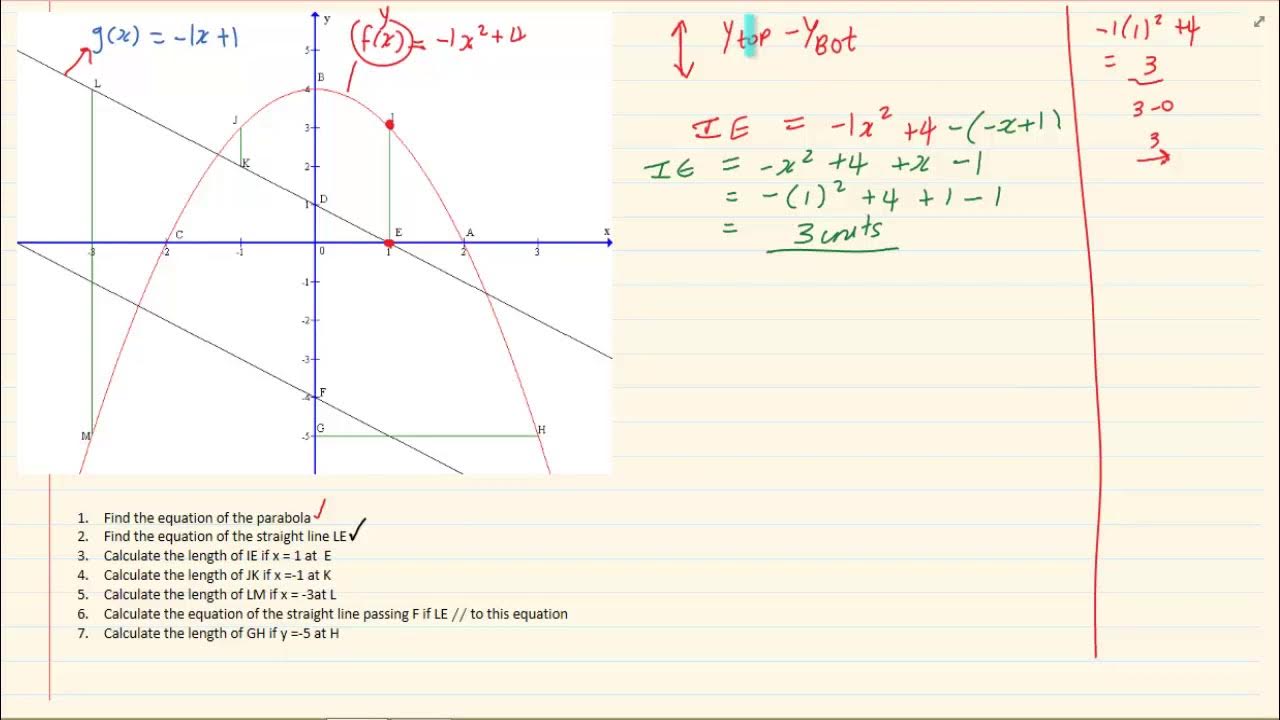 g(x) = -1x + 1
y
(f(x)) = -1x² + 4
y
5
L
B
4
J
3
I
K
2
D
1
C
E
A
x
-3
-2
-1
0
1
2
3
-1
-2
-3
F
-4
M
G
-5
H
y top - y Bot
IE = -1x² + 4 - (-x+1)
IE = -x² + 4 + x - 1
= -(1)² + 4 + 1 - 1
= 3 units
-1(1)² + 4
= 3
3 - 0
3
1. Find the equation of the parabola ✓
2. Find the equation of the straight line LE ✓
3. Calculate the length of IE if x = 1 at E
4. Calculate the length of JK if x =-1 at K
5. Calculate the length of LM if x = -3at L
6. Calculate the equation of the straight line passing F if LE // to this equation
7. Calculate the length of GH if y =-5 at H